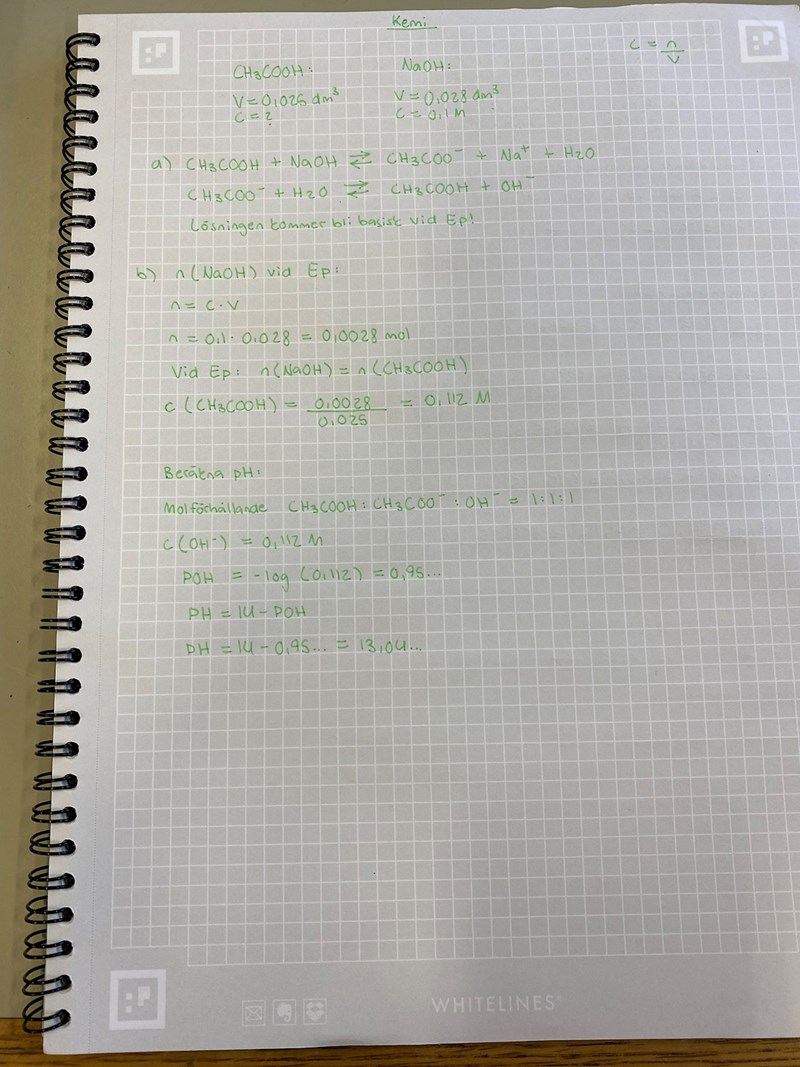 Kemi
c = n/V
CH3COOH: NaOH:
V = 0,025 dm³ V = 0,028 dm³
C = ? C = 0,1 M
a) CH3COOH + NaOH ⇄ CH3COO⁻ + Na⁺ + H2O
CH3COO⁻ + H2O ⇄ CH3COOH + OH⁻
Lösningen kommer bli basisk vid Ep!
b) n(NaOH) vid Ep:
n = C · V
n = 0,1 · 0,028 = 0,0028 mol
Vid Ep: n(NaOH) = n(CH3COOH)
C (CH3COOH) = 0,0028/0,025 = 0,112 M
Beräkna pH:
Molförhållande CH3COOH : CH3COO⁻ : OH⁻ = 1:1:1
C(OH⁻) = 0,112 M
POH = -log (0,112) = 0,95...
PH = 14 - POH
PH = 14 - 0,95... = 13,04...
WHITELINES®